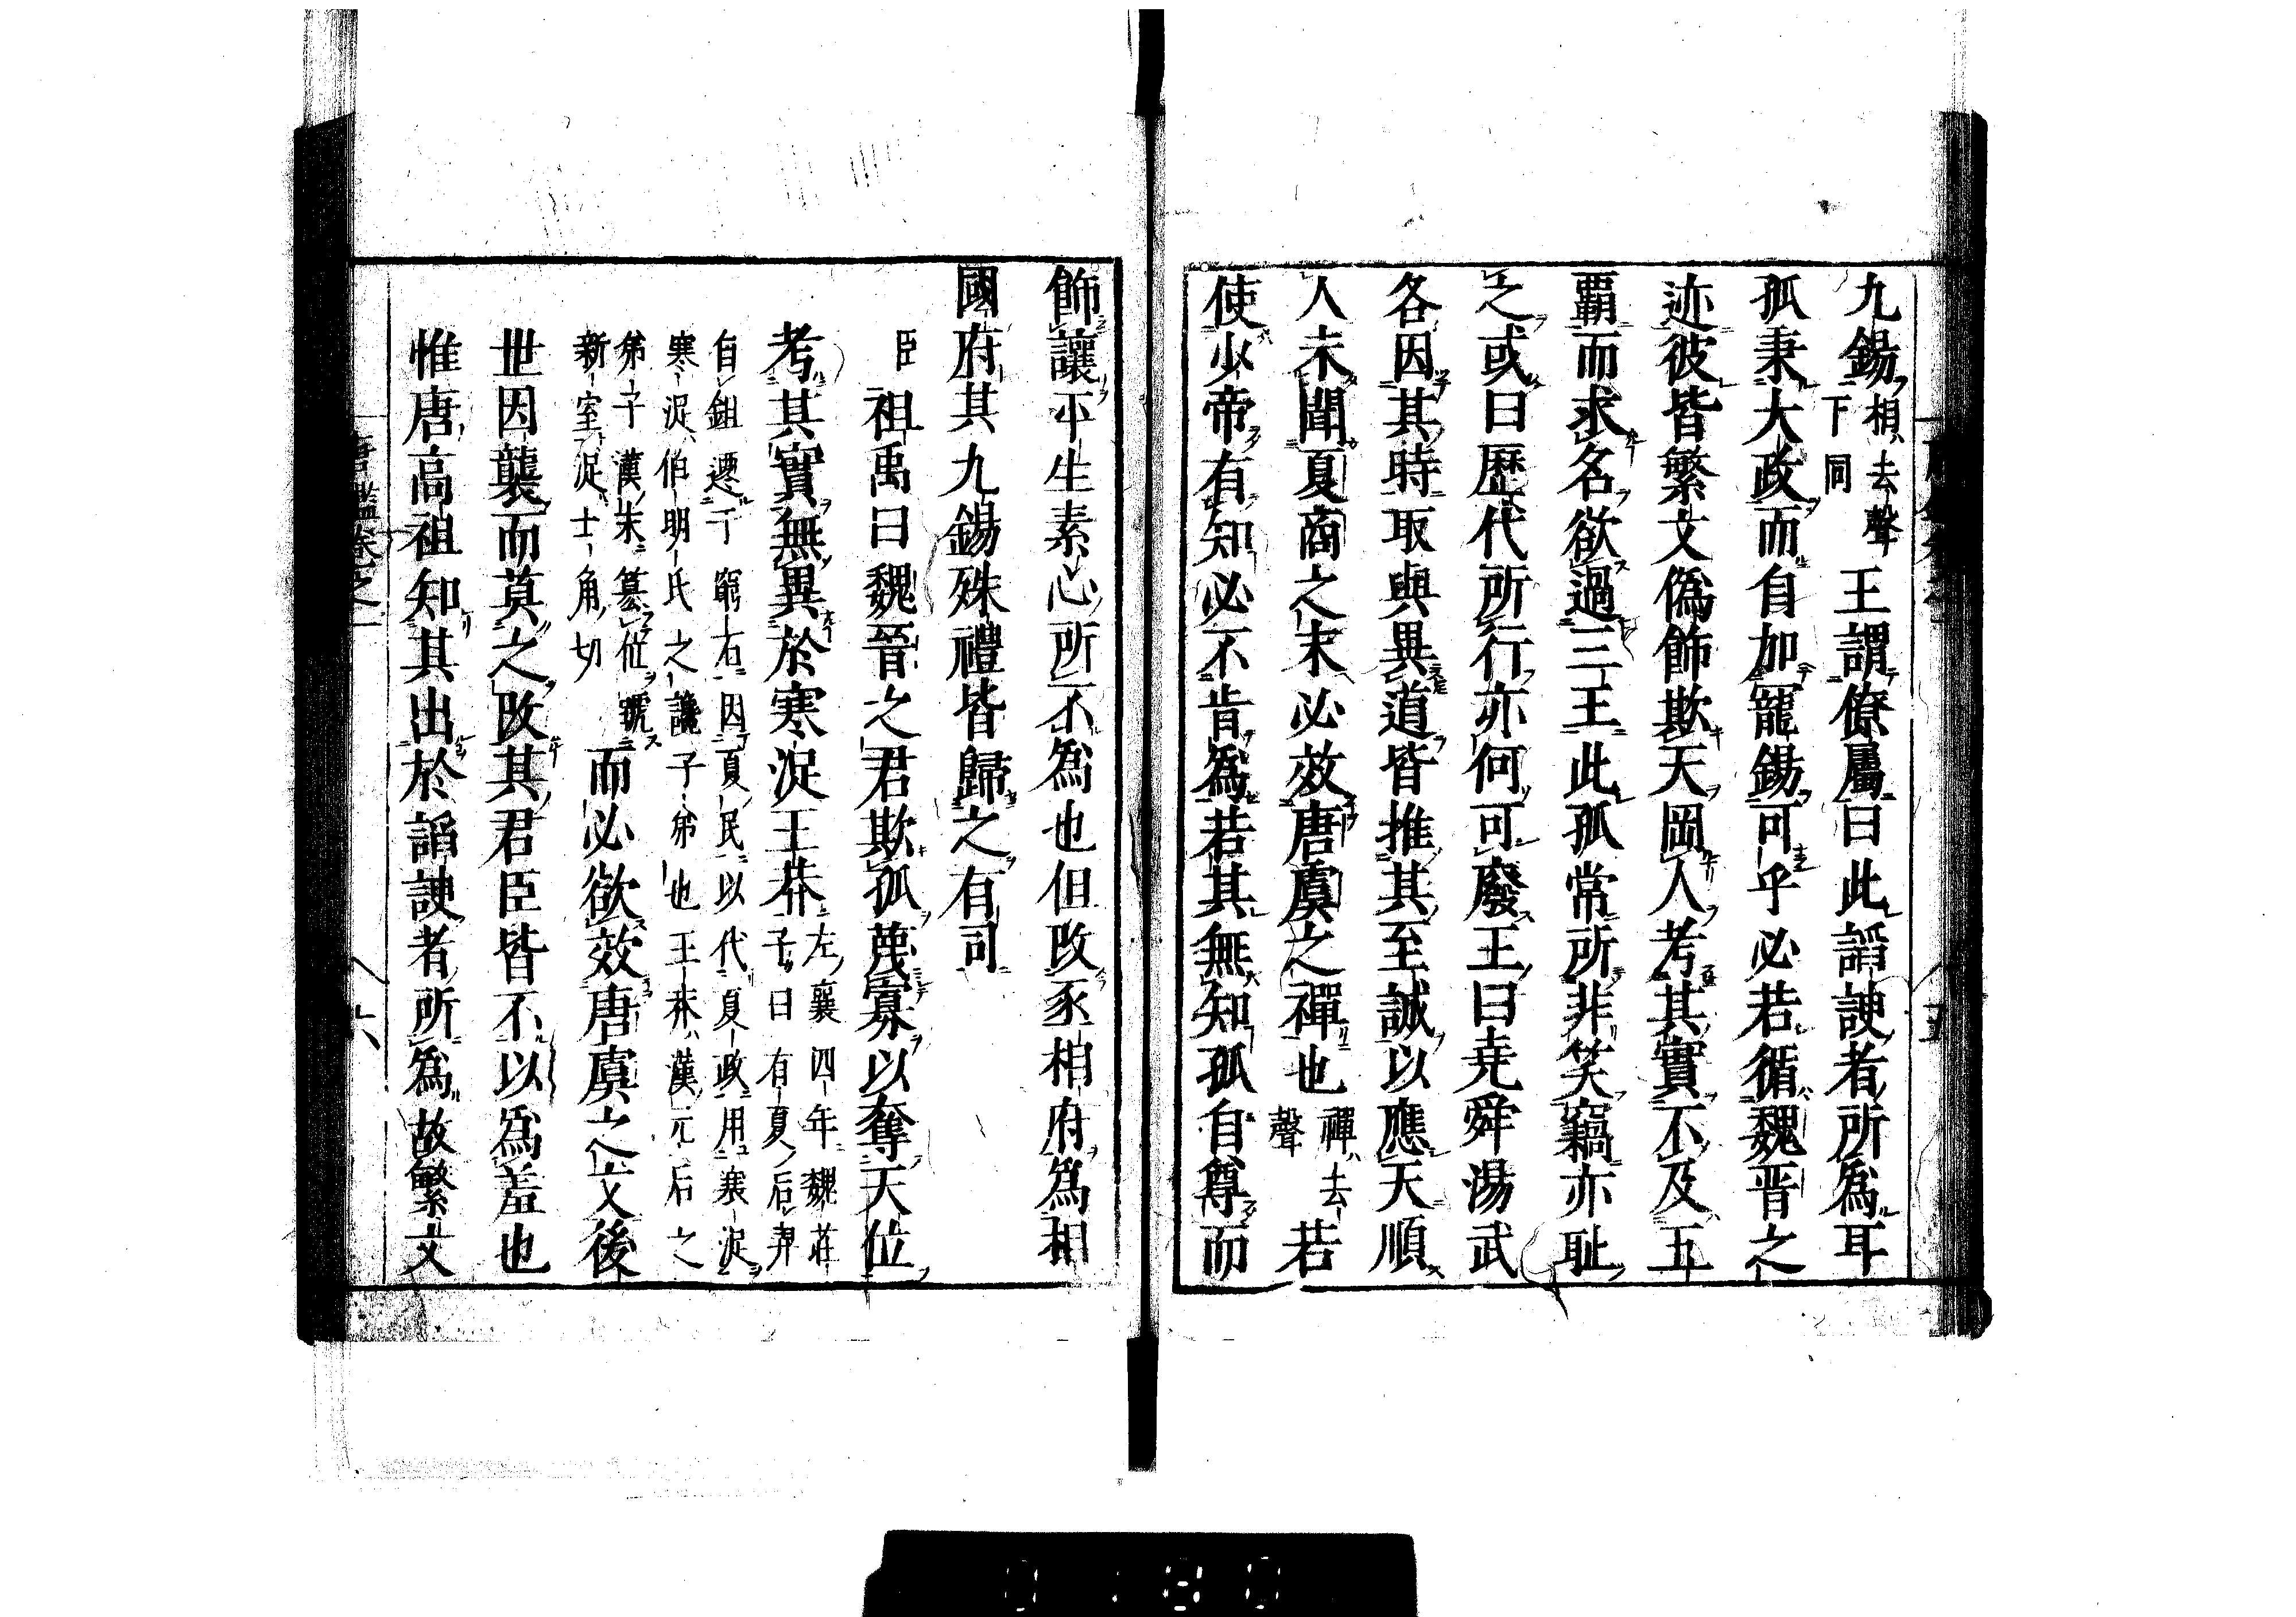 九錫相去聲下同王謂僚屬曰此諂諛者所爲耳
孤秉大政而自加寵錫可乎必若循魏晋之
迹彼皆繁文僞飾欺天罔人考其實不及五
覇而求名欲過三王此孤常所非笑竊亦耻
之或曰歷代所行亦何可廢王曰堯舜湯武
各因其時取與異道皆推其至誠以應天順
人未聞夏商之末必效唐虞之禪也禪去聲若
使少帝有知必不肯爲若其無知孤自尊而
飾讓平生素心所不爲也但改丞相府爲相
國府其九錫殊禮皆歸之有司
臣祖禹曰魏晉之君欺孤蔑寡以奪天位
考其實無異於寒浞王莽左襄四年魏莊子曰有夏后羿
自鉏遷于窮石因夏民以代夏政用寒浞
寒浞伯明氏之讒子弟也王莽漢元后之
弟子漢末簒位號新室浞士角切而必欲效唐虞之文後
世因襲而莫之改其君臣皆不以爲羞也
惟唐高祖知其出於諂諛者所爲故繁文
唐鑑卷之一
六